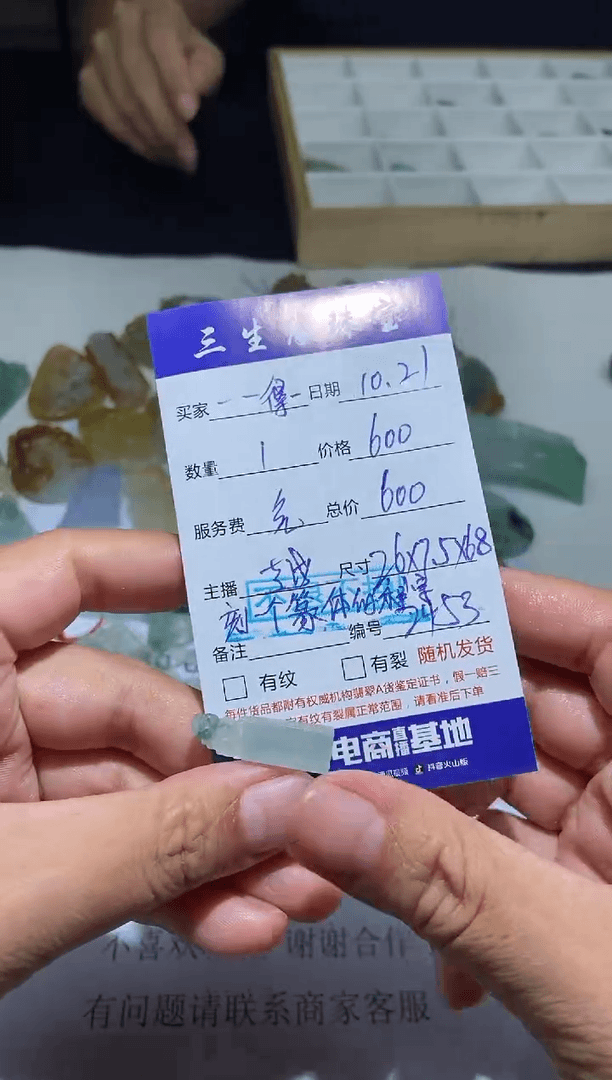 三生
买家 一一得一 日期 10.21
数量 1 价格 600
服务费 免 总价 600
主播 尺寸 26x7.5x68
刻个篆体的程字
备注 编号 7453
有纹 有裂 随机发货
每件货品都附有权威机构翡翠A货鉴定证书,假一赔三
有纹有裂属正常范围,请看准后下单
电商直播基地
抖音火山版
不喜欢 谢谢合作
有问题请联系商家客服